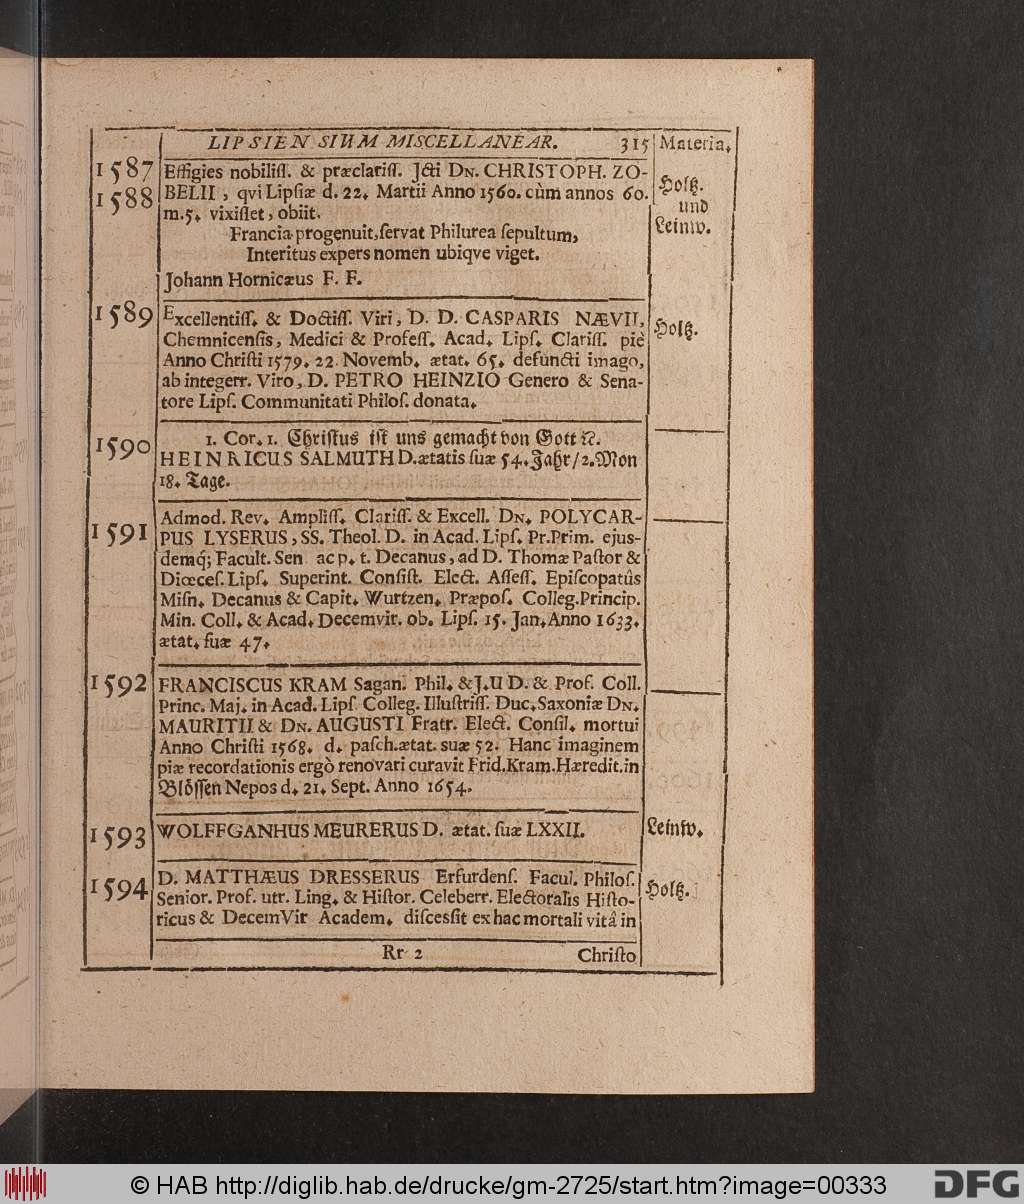 LIPSIENSIUM MISCELLANEAR. 315 Materia.
1587 Effigies nobiliſſ. & præclariſſ. Jcti DN. CHRISTOPH. ZO-
1588 BELII, qvi Lipſiæ d. 22. Martii Anno 1560. cùm annos 60. Holtz.
m. 5. vixiſſet, obiit. und
Francia progenuit, ſervat Philurea ſepultum, Leinw.
Interitus expers nomen ubiqve viget.
Johann Hornicæus F. F.
1589 Excellentiſſ. & Doctiſſ. Viri, D. D. CASPARIS NÆVII, Holtz.
Chemnicenſis, Medici & Profeſſ. Acad. Lipſ. Clariſſ. piè
Anno Chriſti 1579. 22. Novemb. ætat. 65. defuncti imago,
ab integerr. Viro, D. PETRO HEINZIO Genero & Sena-
tore Lipſ. Communitati Philoſ. donata.
1590 1. Cor. 1. Chriſtus iſt uns gemacht von Gott ꝛc.
HEINRICUS SALMUTH D. ætatis ſuæ 54. Jahr / 2. Mon
18. Tage.
1591 Admod. Rev. Ampliſſ. Clariſſ. & Excell. DN. POLYCAR-
PUS LYSERUS, SS. Theol. D. in Acad. Lipſ. Pr. Prim. ejus-
demq́; Facult. Sen. ac p. t. Decanus, ad D. Thomæ Paſtor &
Diœceſ. Lipſ. Superint. Conſiſt. Elect. Aſſeſſ. Epiſcopatûs
Miſn. Decanus & Capit. Wurtzen. Præpoſ. Colleg. Princip.
Min. Coll. & Acad. Decemvir. ob. Lipſ. 15. Jan. Anno 1633.
ætat. ſuæ 47.
1592 FRANCISCUS KRAM Sagan. Phil. & J. U D. & Prof. Coll.
Princ. Maj. in Acad. Lipſ. Colleg. Illuſtriſſ. Duc. Saxoniæ DN.
MAURITII & DN. AUGUSTI Fratr. Elect. Conſil. mortui
Anno Chriſti 1568. d. paſch. ætat. suæ 52. Hanc imaginem
piæ recordationis ergò renovari curavit Frid. Kram. Hæredit. in
Blöſſen Nepos d. 21. Sept. Anno 1654.
1593 WOLFFGANHUS MEURERUS D. ætat. ſuæ LXXII. Leinw.
1594 D. MATTHÆUS DRESSERUS Erfurdenſ. Facul. Philoſ. Holtz.
Senior. Prof. utr. Ling. & Hiſtor. Celeberr. Electoralis Hiſto-
ricus & DecemVir Academ. diſcessit ex hac mortali vitâ in
Rr 2 Chriſto
© HAB http://diglib.hab.de/drucke/gm-2725/start.htm?image=00333
DFG